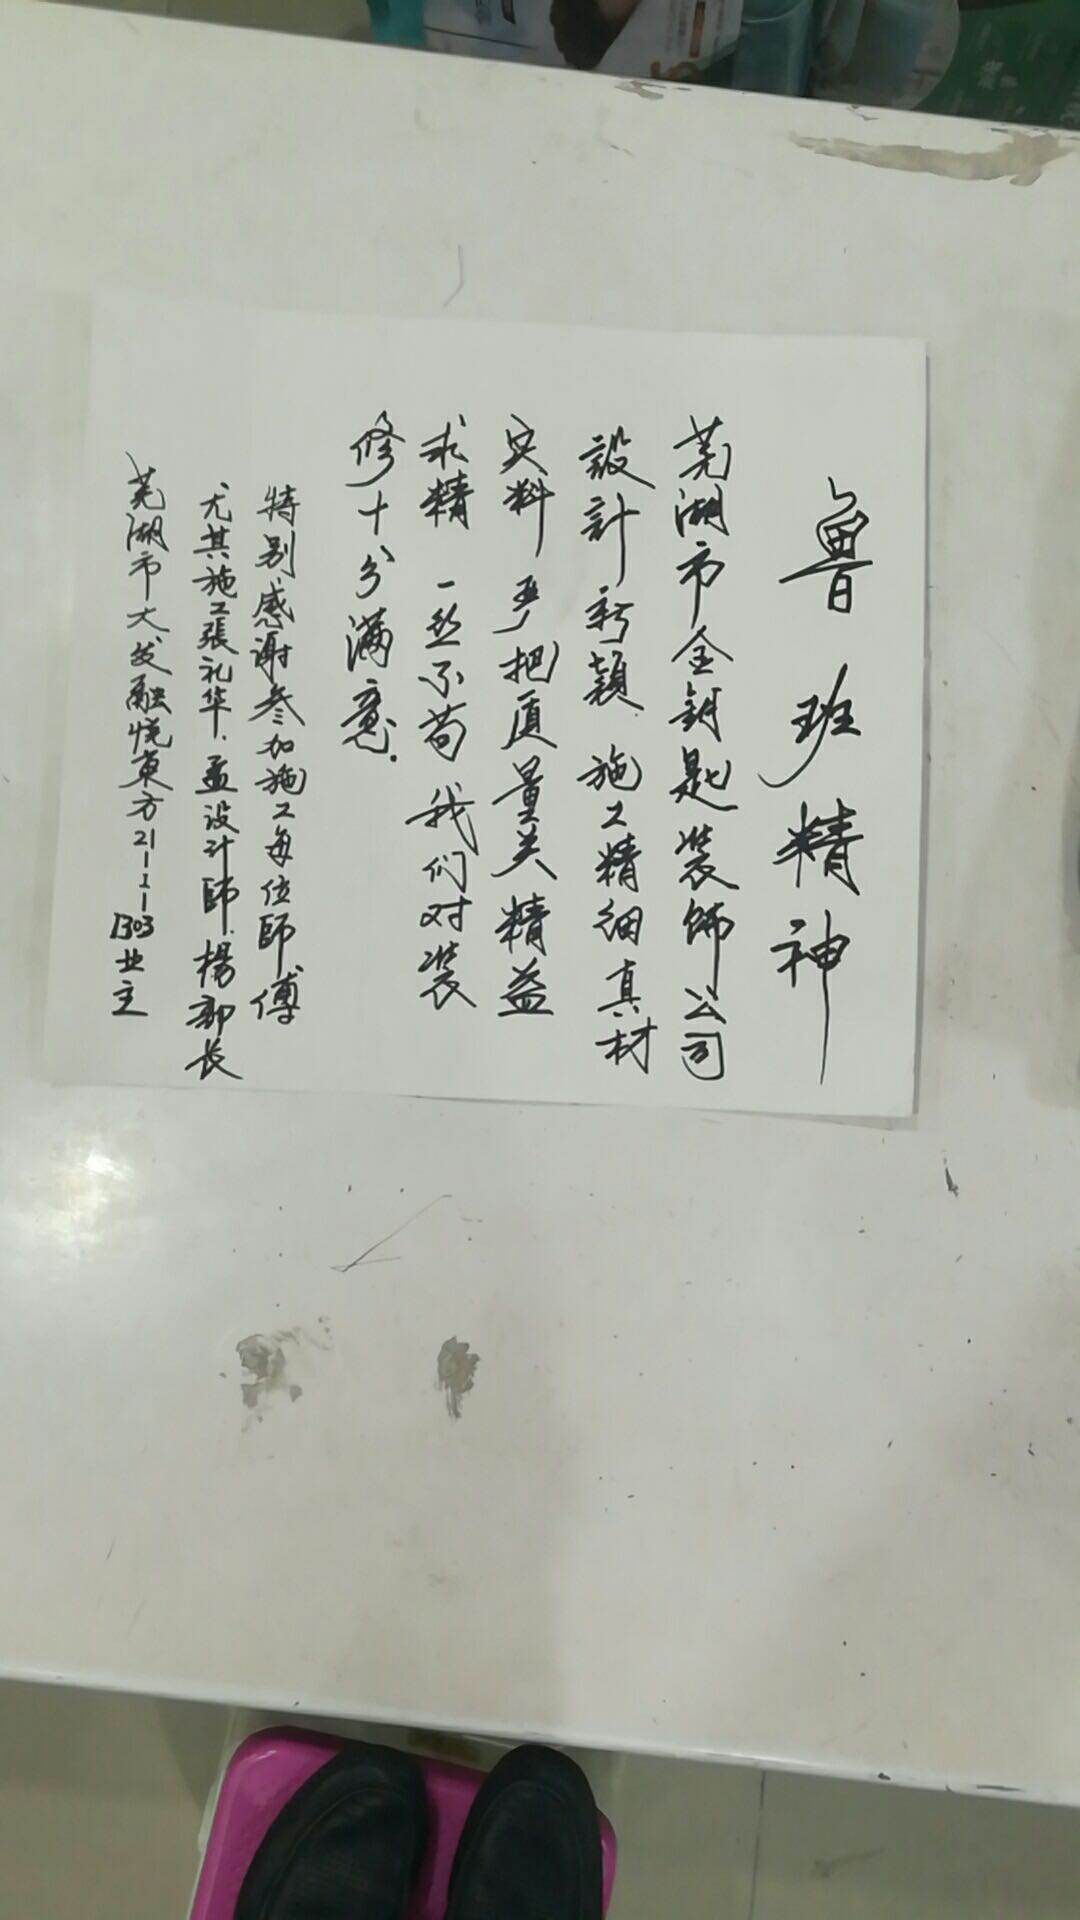 鲁班精神
芜湖市金钥匙装饰公司
設計新颖.施工精细真材
实料严把质量关精益
求精一丝不苟我们对装
修十分满意.
特别感谢参加施工每位師傅
尤其施工張礼华.孟设计師.楊部长
芜湖市大发融悦東方21-1-1303业主